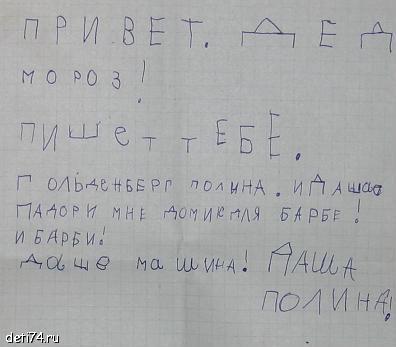 ПРИВЕТ. ДЕД
МОРОЗ!
ПИШЕТ ТЕБЕ.
ГОЛЬДЕНБЕРГ ПОЛИНА. И ДАША
ПАДОРИ МНЕ ДОМИК ДЛЯ БАРБЕ!
И БАРБИ!
ДАШЕ МАШИНА! ДАША
ПОЛИНА!
deti74.ru